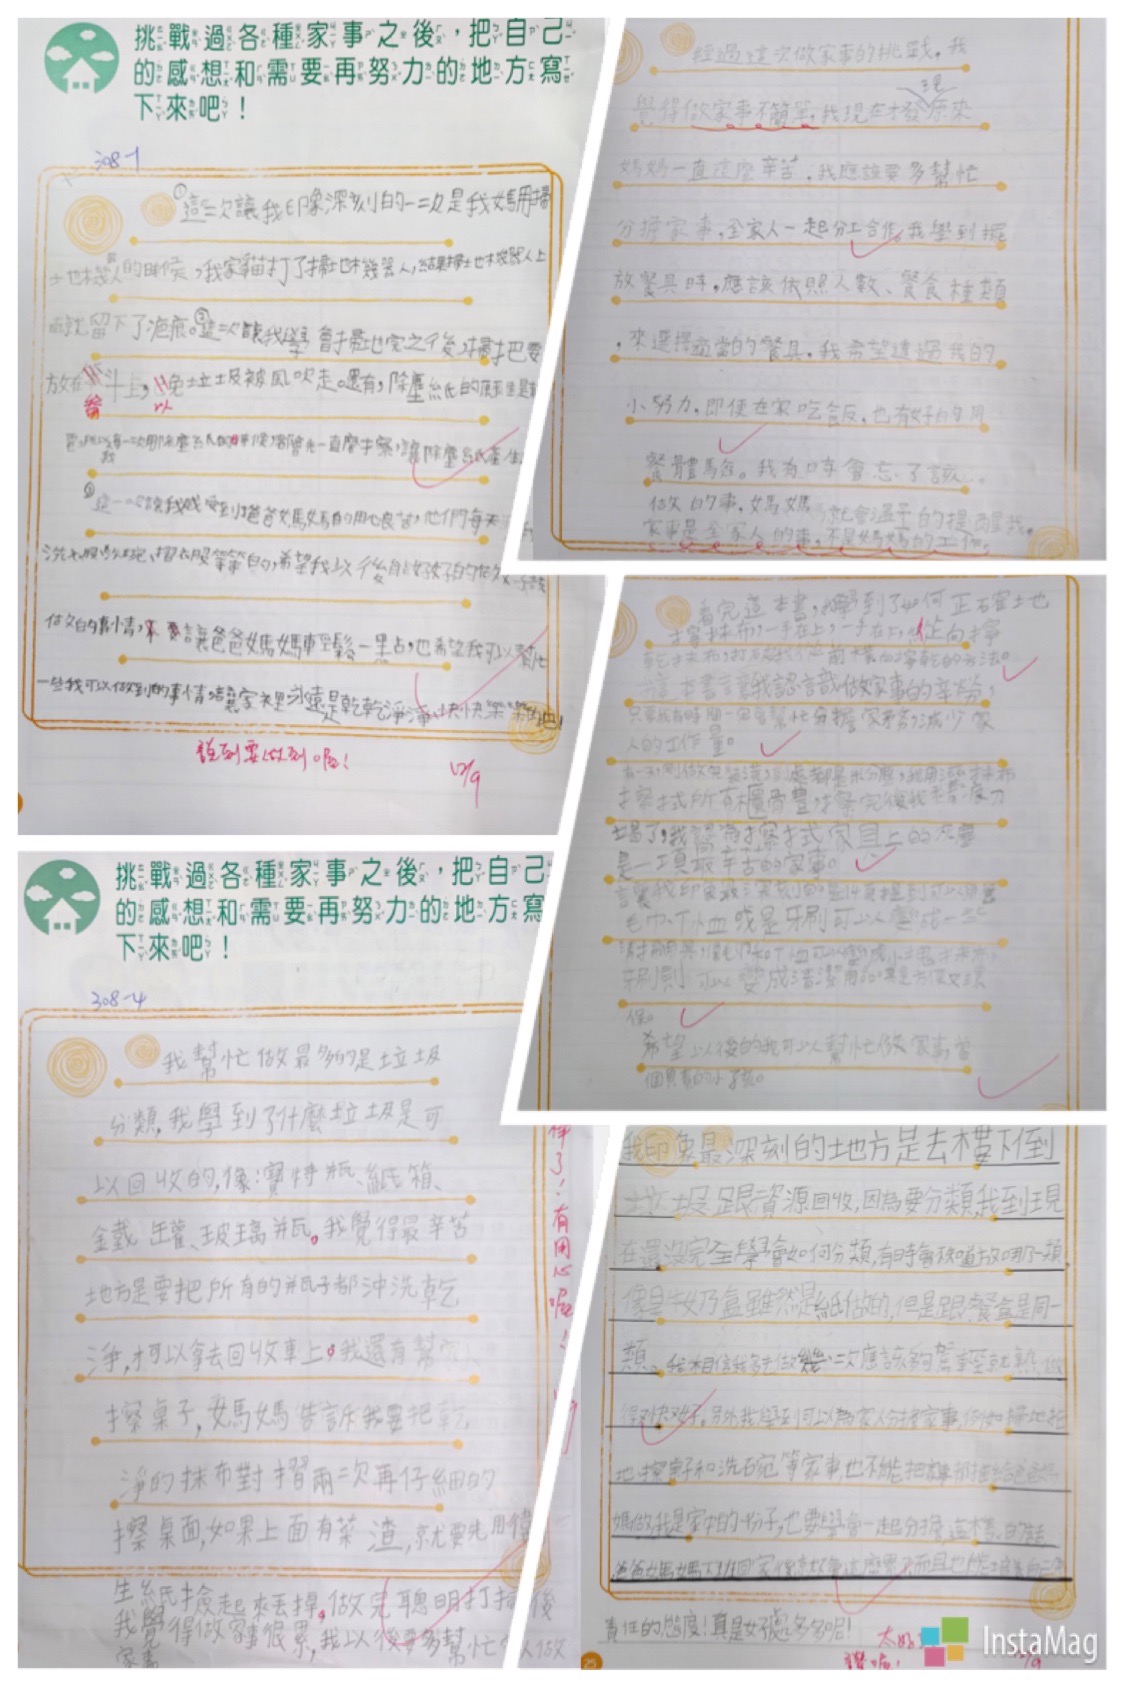 挑戰過各種家事之後，把自己
的感想和需要再努力的地方寫
下來吧！
308-1
①這次讓我印象深刻的一次是我媽用掃
土也機器人的時候，我家貓打了掃地機器人，結果掃地機器人上
就留下了疤痕。②這次讓我學會掃地完之後，掃把要
放在 斗上， 免垃圾被風吹走。還有，除塵紙的原
以
③這一次讓我感受到爸爸媽媽的用心良苦，他們每天
洗衣服 摺衣服等等的，希望我以後自己好好的做
做的事情， 讓爸爸媽媽輕鬆一點，也希望我可以幫忙
一些我可以做到的事情，讓家裡永遠是乾乾淨淨、快快樂樂的吧！
說到要做到喔！
12/9
經過這次做家事的挑戰，我
現
覺得做家事不簡單，我現在才發原來
媽媽一直這麼辛苦，我應該要多幫忙
分擔家事，全家人一起分工合作。我學到擺
放餐具時，應該依照人數、餐食種類
，來選擇適當的餐具。我希望透過我的
小努力，即使在家吃飯，也有好的用
餐體驗。我有時會忘了該
做的事，媽媽就會溫柔的提醒我。
家事是全家人的事，不是媽媽的工作。
看完這本書，我學到了如何正確
擰抹布，一手在上，一手在下， 向擰
乾抹布，打破我以前 擰乾的方法。
這本書讓我認識做家事的辛勞，
只要我有時間一定會幫忙分擔家務，減少家
人的工作量。
有一次 到處都是灰塵，我用濕抹布
擦拭所有櫃 ，擦完後我
了，我認為擦拭家具上的灰塵
是一項最辛苦的家事。
讓我印象最深刻的是 提到可以用舊
毛巾、T恤或是牙刷可以變成一些
清掃用具，舊毛巾和T恤可以變成小 抹布，
牙刷則可以變成清潔用品，真是方便又環
保。
希望以後的我可以幫忙做家事，當
個負責的小孩。
挑戰過各種家事之後，把自己
的感想和需要再努力的地方寫
下來吧！
308-4
我幫忙做最多的是垃圾
分類，我學到了什麼垃圾是可
以回收的，像寶特瓶、紙箱、
金鐵罐、玻璃瓶。我覺得最辛苦
地方是要把所有的瓶子都沖洗乾
淨，才可以拿去回收車上。我還有幫忙
擦桌子，媽媽告訴我要把乾
淨的抹布對摺兩次再仔細的
擦桌面，如果上面有菜渣，就要先用衛
生紙撿起來丟掉。做完聰明打掃後
我覺得做家事很累，我以後要多幫忙 人做
家事
棒了！有用心喔！
我印象最深刻的地方是去樓下倒
垃圾跟資源回收，因為要分類我到現
在還沒完全學會如何分類，有時會不知道放哪一類
像是牛奶盒雖然是紙做的，但是跟餐盒是同一
類。我相信我多做幾次應該夠駕輕就熟，做
得又快又好。另外我學到可以為家人分擔家事，例如掃地拖
地、擦桌子和洗碗等家事，也不能把家事都推給爸爸媽
媽做，我是家中的一份子，也要學會一起分擔，這樣的話
爸爸媽媽下班回家後就不會這麼累了，而且也能培養自己
責任的態度！真是好處多多呢！
太好
讚喔！
12/9
25
InstaMag